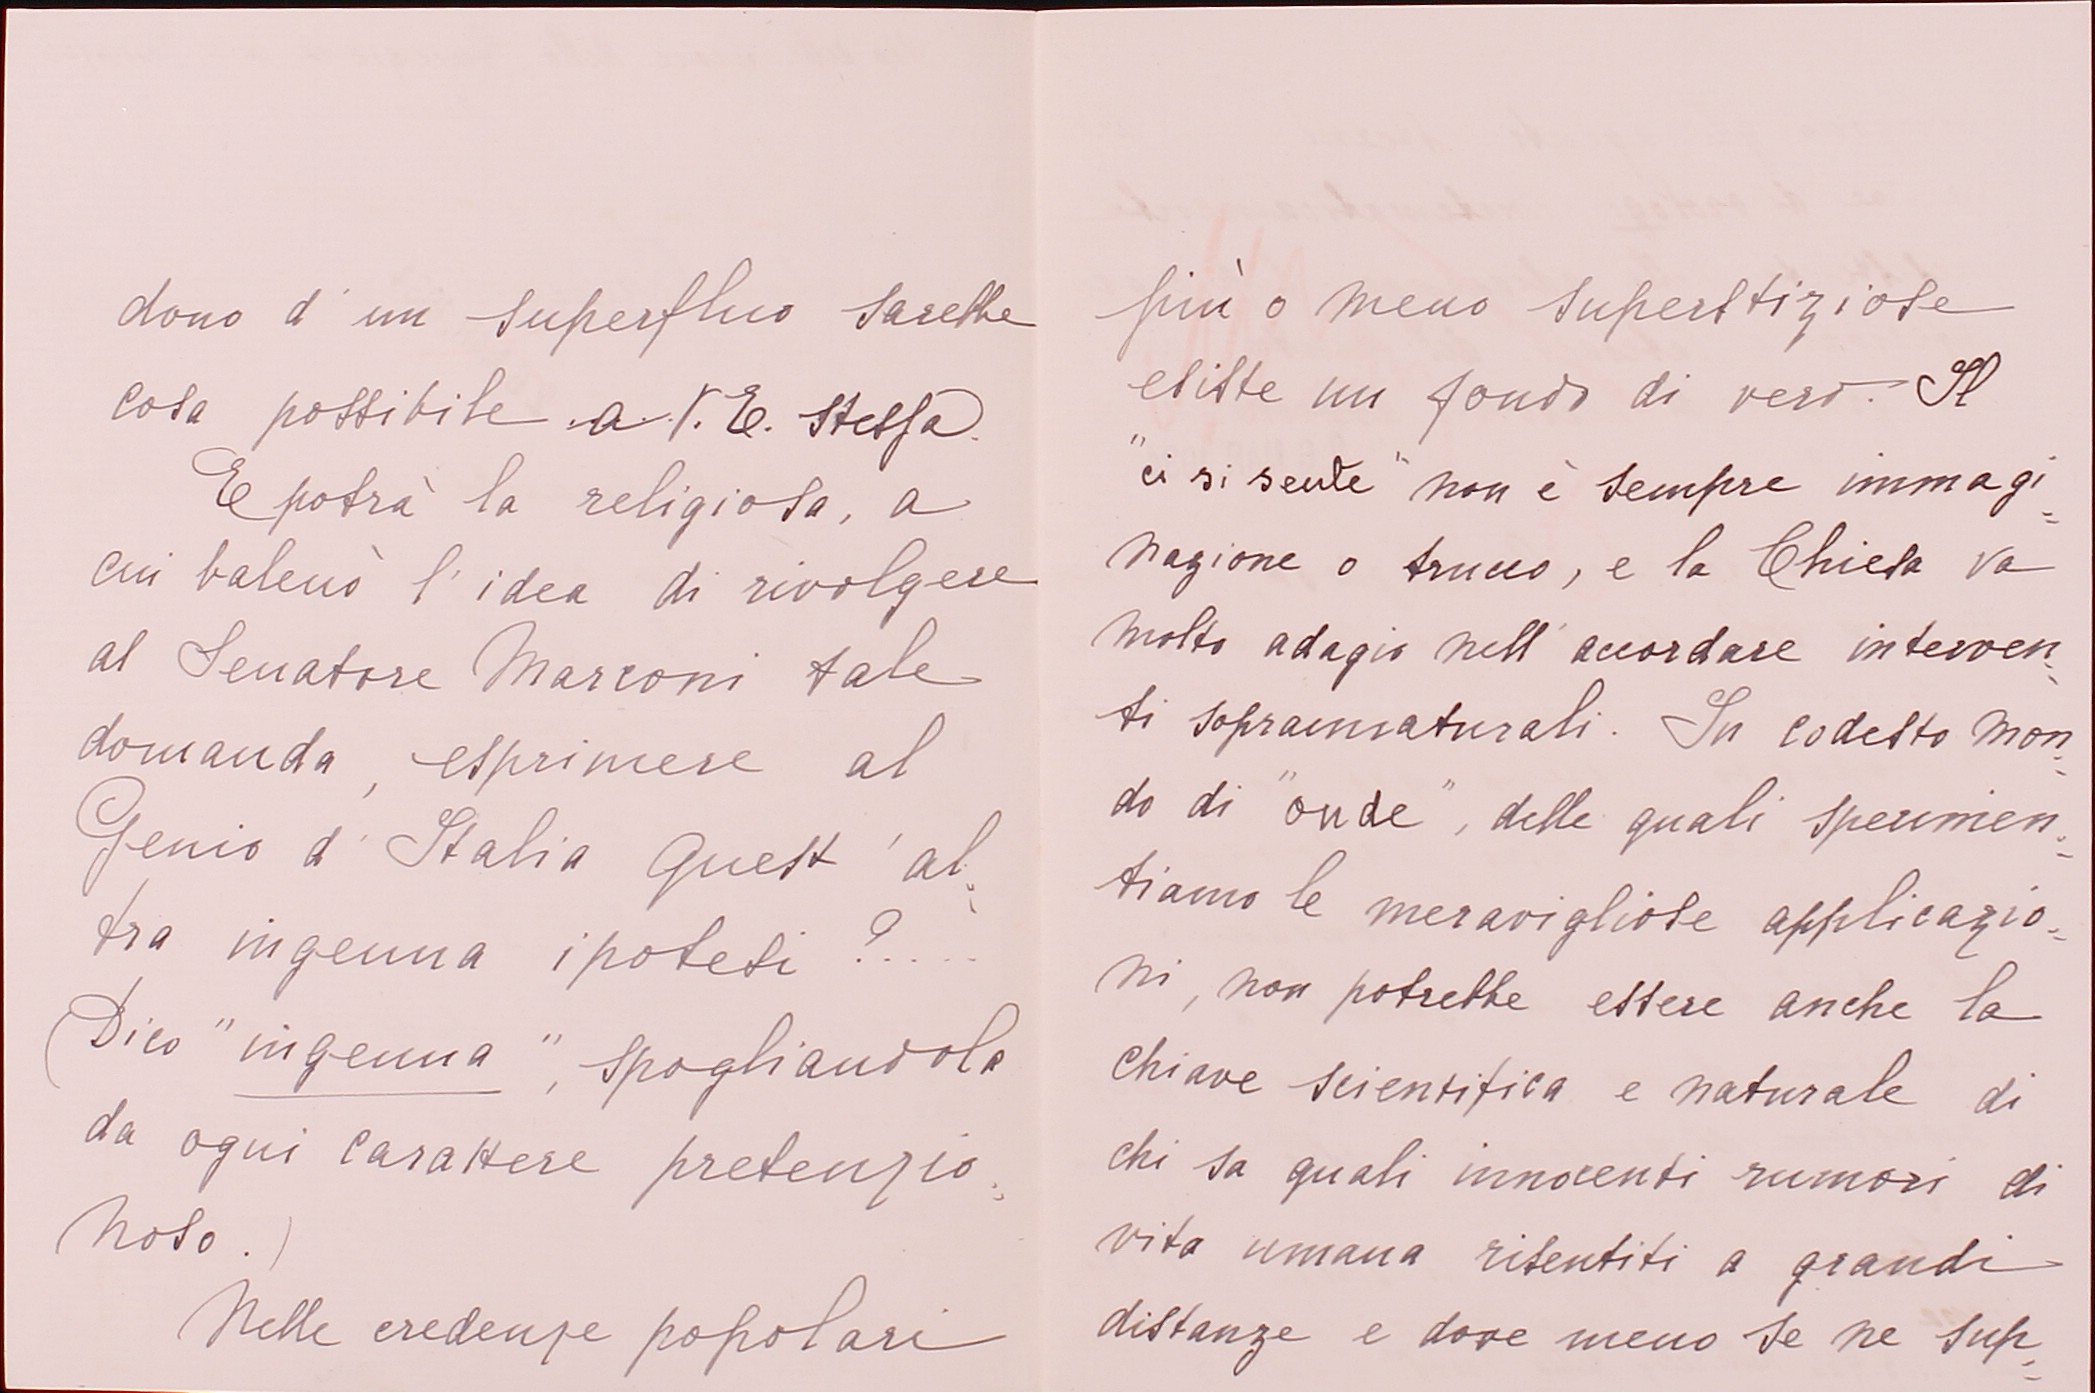 dono d'un superfluo sarebbe
cosa possibile a V. E. stessa.
E potrà la religiosa, a
cui balenò l'idea di rivolgere
al Senatore Marconi tale
domanda, esprimere al
Genio d'Italia quest'al=
tra ingenua ipotesi ?....
(Dico "ingenua", spogliandola
da ogni carattere pretenzio=
noso.)
Nelle credenze popolari
più o meno superstiziose
esiste un fondo di vero. Il
"ci si sente" non è sempre immagi=
nazione o trucco, e la Chiesa va
molto adagio nell'accordare interven=
ti soprannaturali. In codesto mon=
do di "onde", delle quali sperimen=
tiamo le meravigliose applicazio=
ni, non potrebbe essere anche la
chiave scientifica e naturale di
chi sa quali innocenti rumori di
vita umana risentiti a grandi
distanze e dove meno se ne sup=